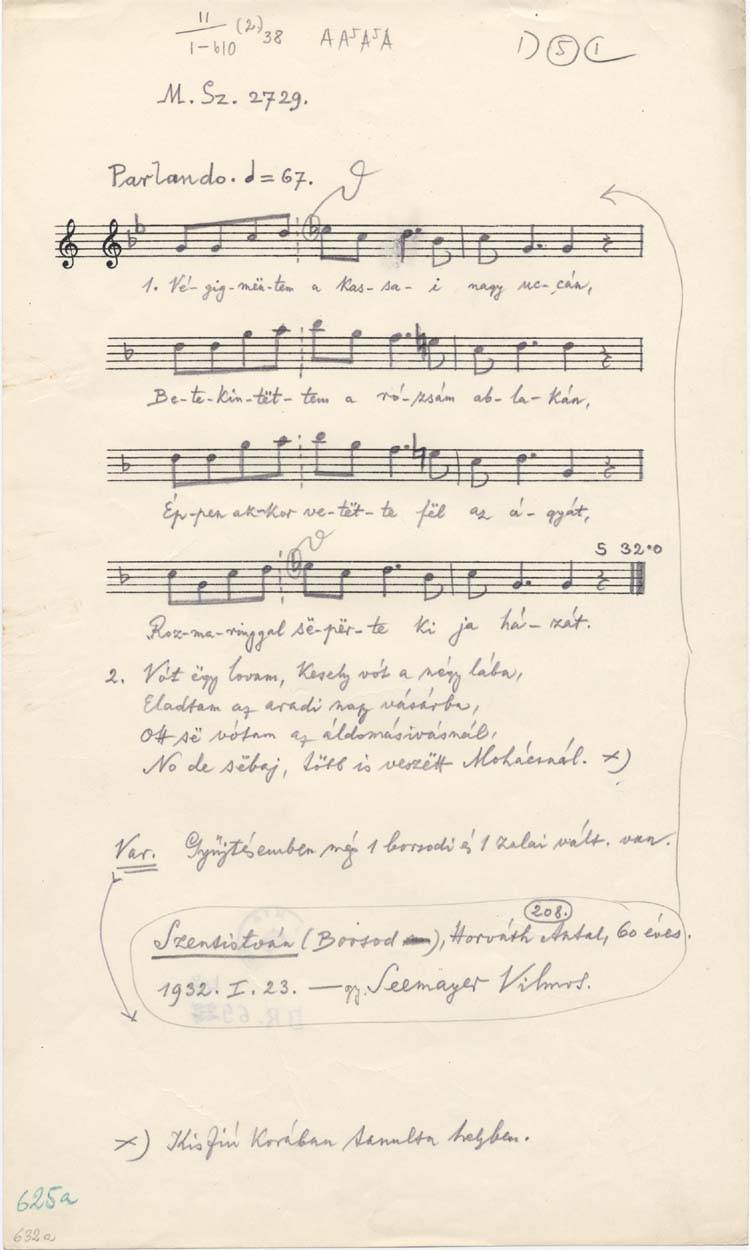 11 (2) 38
1-610
A A⁵A⁵A
5
M. Sz. 2729.
Parlando. = 67.
1. Vé-gig-mën-tem a kas-sa-i nagy uc-cán,
Be-te-kin-tët-tem a ró-zsám ab-la-kán,
Ép-pen ak-kor ve-tët-te fël az á-gyát,
S 32·0
Roz-ma-ringgal së-për-te ki ja há-zát.
2. Vót ëgy lovam, kesely vót a négy lába,
Eladtam az aradi nagy vásárba,
Ott së vótam az áldomásivásnál,
No de sëbaj, több is veszëtt Mohácsnál. x)
Var. Gyűjtésemben még 1 borsodi és 1 zalai vált. van.
208.
Szentistván (Borsod), Horváth Antal, 60 éves.
1932. I. 23. — gy. Seemayer Vilmos.
x) Kisfiú korában tanulta helyben.
625a
632a